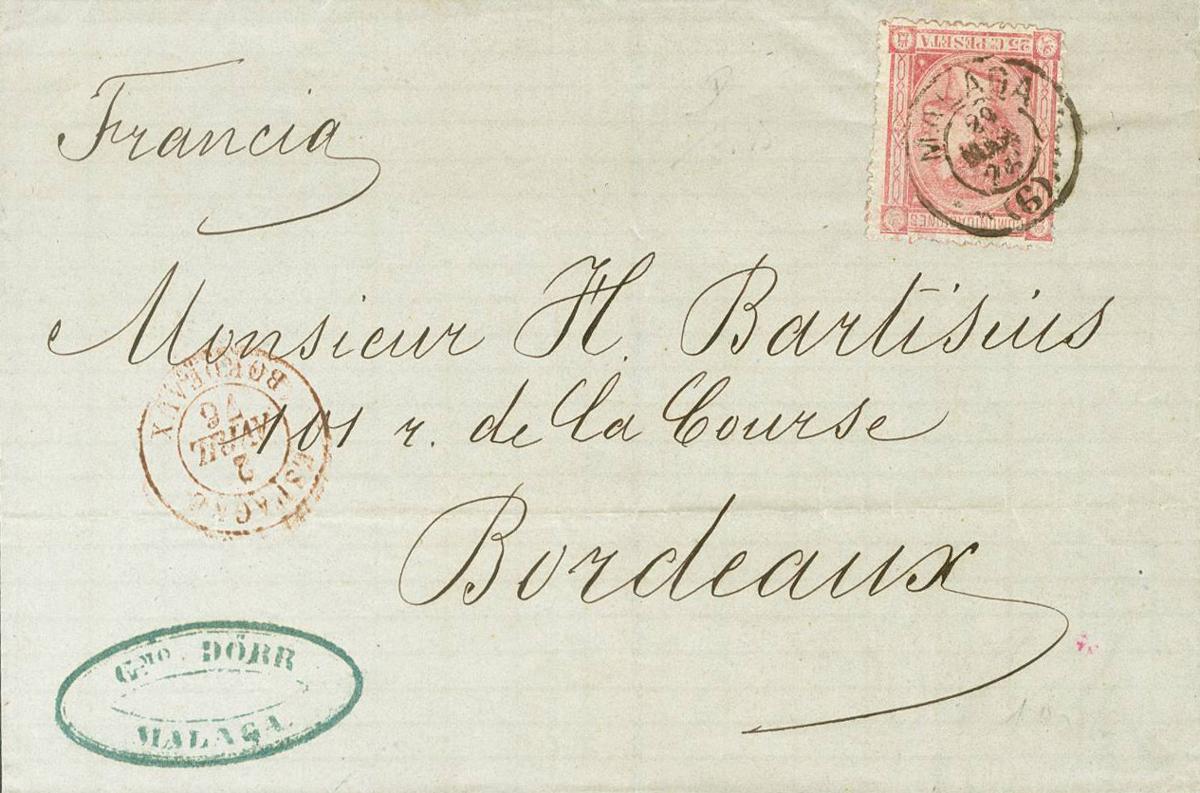 Francia
25 C. PESETA
MALAGA
29
MAR
76
(6)
COMUNICACIONES
Monsieur H. Bartisius
101 r. de la Course
Bordeaux
ESPAGNE
2
AVRIL
76
BORDEAUX
Gmo. DÖRR
MALAGA